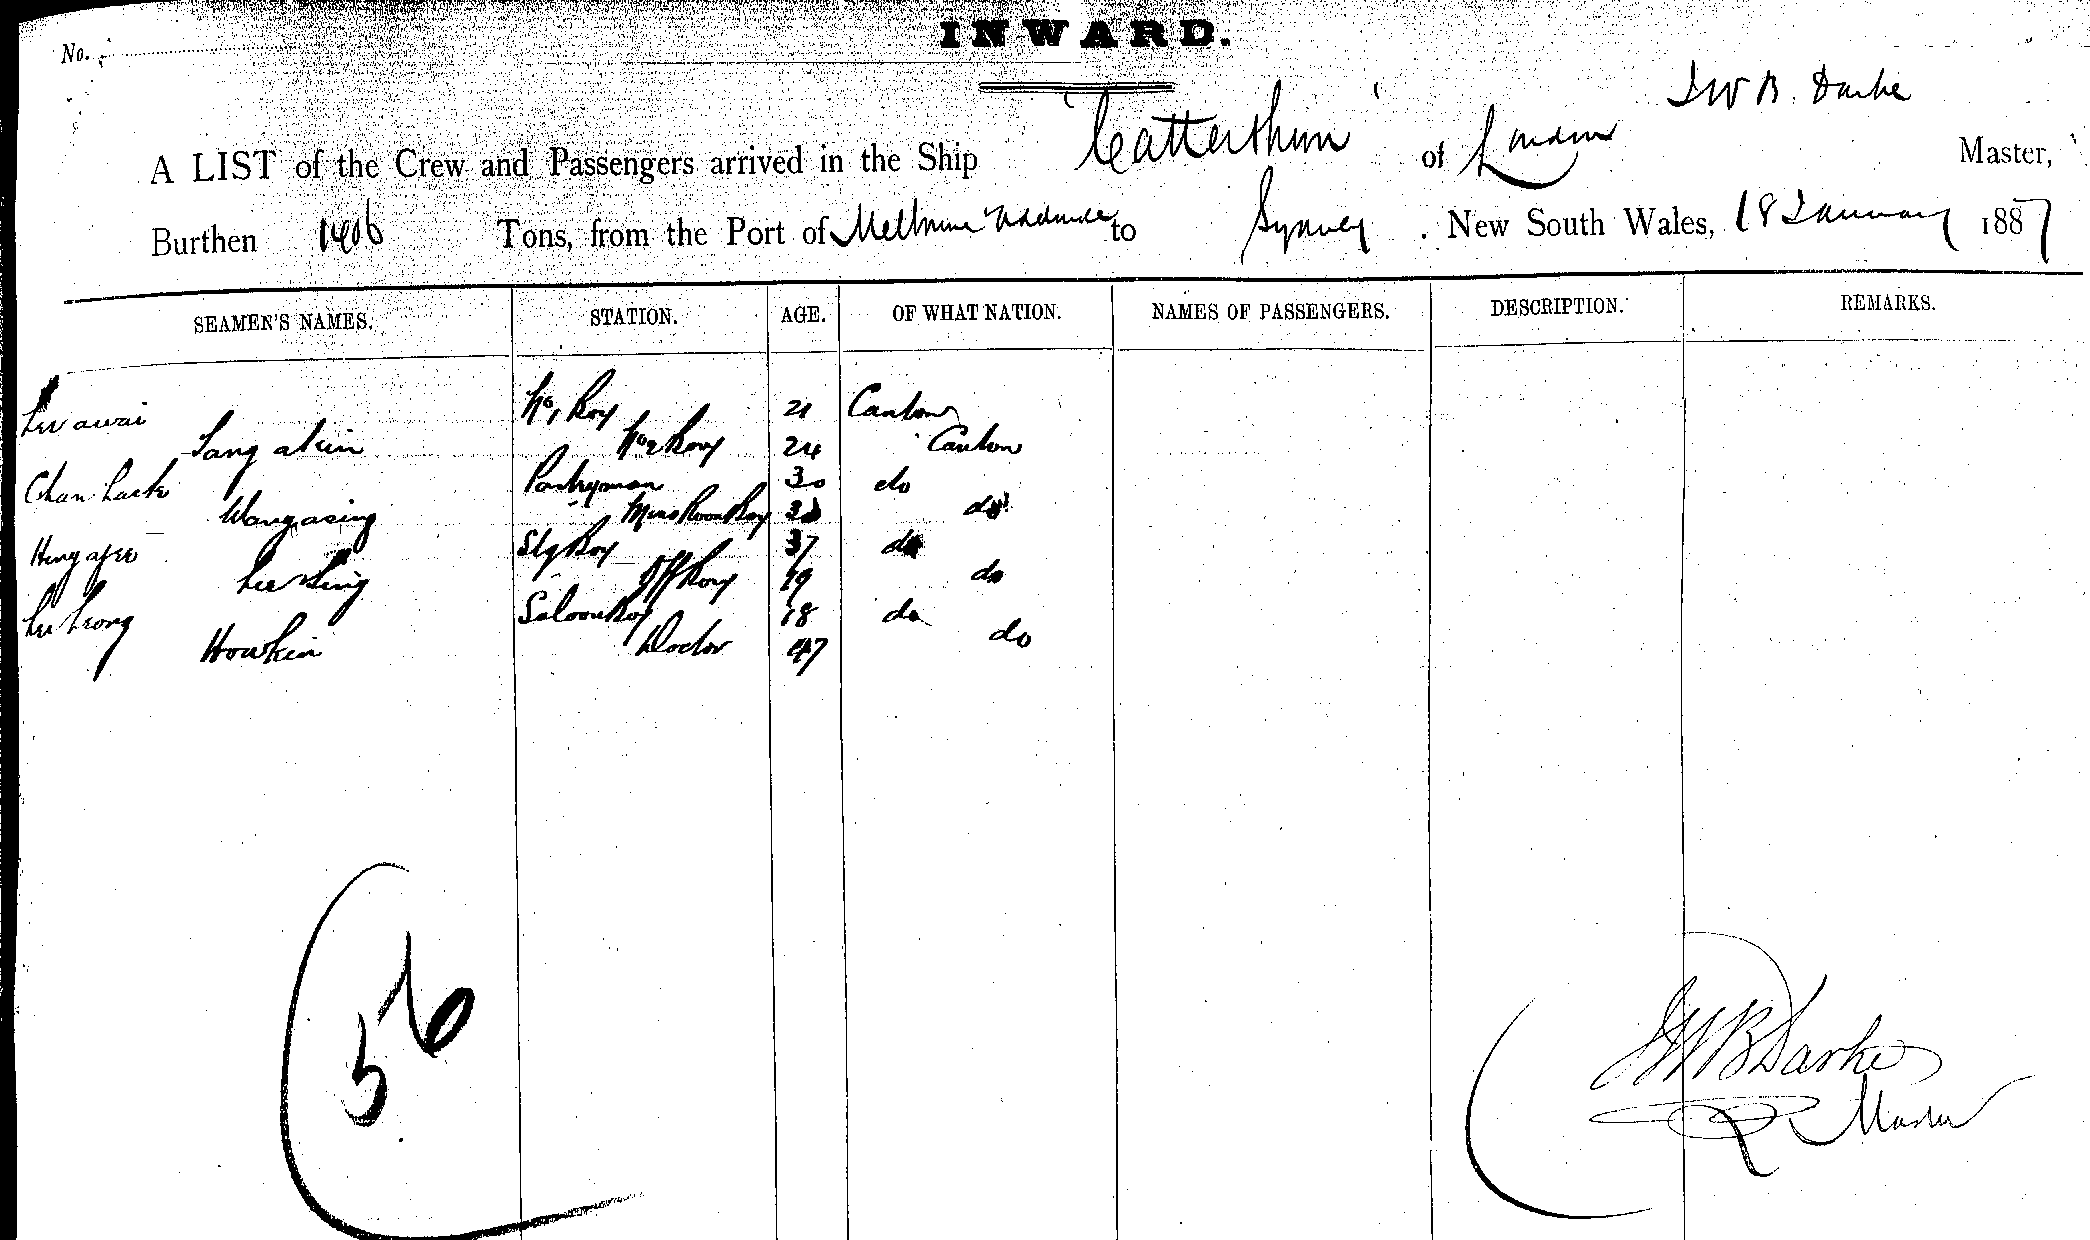 No.
INWARD.
J W B. Darke
A LIST of the Crew and Passengers arrived in the Ship "Catterthun" of London Master,
Burthen 1406 Tons, from the Port of Melbourne Adelaide to Sydney. New South Wales, 18 January 1887
SEAMEN'S NAMES. STATION. AGE. OF WHAT NATION. NAMES OF PASSENGERS. DESCRIPTION. REMARKS.
No 1 Boy 21 Canton
No 2 Boy 24 Canton
Chan Pantryman 30 do
Wongasing Mess Room Boy do
Boy 37 do
Lee Off Boy 19 do
Saloon Boy 18 do
Howkin Doctor 47 do
56
JWB Darke
Master